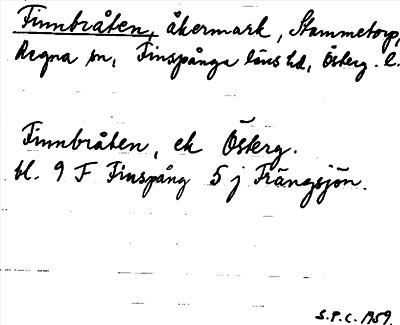 Finnbråten, åkermark, Stammetorp,
Regna sn, Finspånga läns hd, Österg. l.
Finnbråten, ek Österg.
bl. 9 F Finspång 5 j Trängsjön.
S.P.C. 1959.